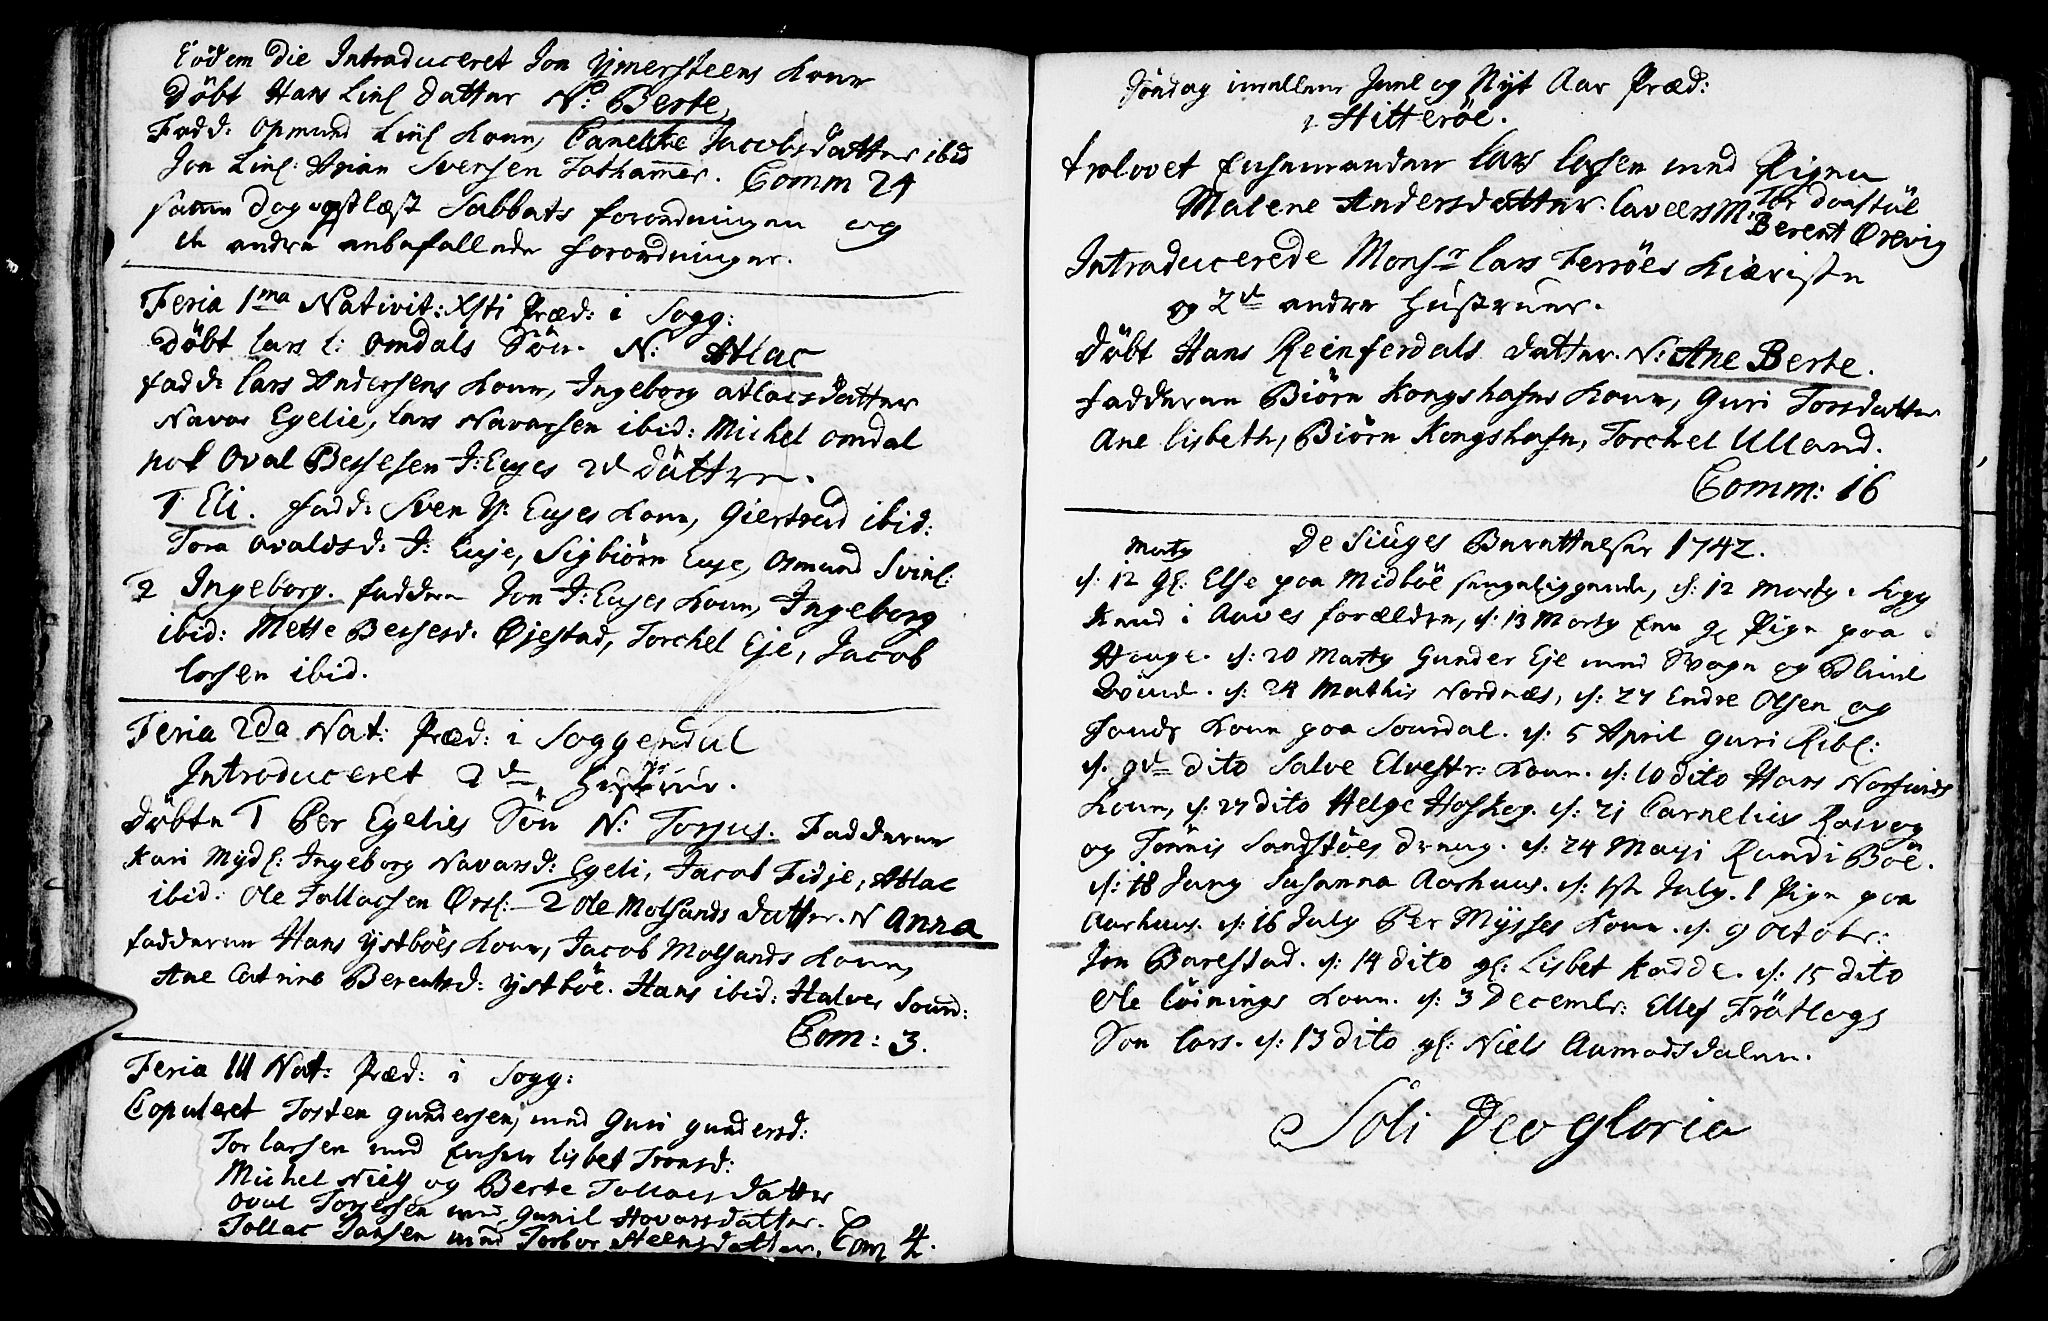 Eodem Die Introduceret Jon Ymersteens Kone
Döbt Hans Linl Datter N: Berte
Fadd: Osmund Linl Kone, Canelke Jacobsdatter ibid
Jon Linl: Arian Svensen Tothammer. Comm 24
samme Dag oplæst Sabbats forordningen og
de andre anbefallede forordninger.
Feria 1ma Nativit: Xsti Præd: i Sogg:
Döbt Lars l: Omdals Sön. N: Atlac
fadd: Lars Andersens Kone, Ingeborg atlacsdatter
Navar Egelie, Lars Navarsen ibid: Michel Omdal
nok Oval Bessesen I: Eyes 2de Döttre.
1 Eli. fadd: Sven Y: Eyes Kone, Giertrud ibid:
Tora Ovaldsd: I: Eyje, Sigbiörn Eye, Osmund Svinl:
2 Ingeborg. faddere Jon I: Eyes Kone, Ingeborg
ibid: Mette Bessesd. Øjestad, Torchel Eje, Jacob
Larsen ibid.
Feria 2da Nat: Præd: i Soggendal
Introduceret 2de Hustruer.
Döbte 1 Per Egelies Sön N: Torjus. Fadderne
Kari Mydl: Ingeborg Navarsd: Egeli, Jacob Fidje, Atlac
ibid: Ole Tollacsen Ørsl: 2 Ole Molsands datter. N Anna
fadderne Hans Ystböes Kone, Jacob Molsands Kone,
Ane Catrine Berentsd: Ystböe. Hans ibid: Halver Sound:
Com: 3.
Feria III Nat: Præd: i Sogg:
Copuleret Tosten Gundersen, med Guri Gundersd:
Tor Larsen med Enken Lisbet Tronsd:
Michel Niels og Berte Tollacsdatter
Oval Torjersen med Gunil Hovarsdatter.
Tollac Jansen med Torbor Steensdatter. Com 4.
Söndag imellem Juul og Nyt Aar Præd:
i Hitteröe.
trolovet Enkemanden Lars Larsen med Pigen
Malene Andersdatter. Caveers M: Tor Danstöl
Berent Ørevig
Introducerede Monsr Lars Ferröes Kiæriste
og 2de andre Hustruer.
Döbt Hans Reinferdals datter. N: Ane Berte.
fadderne Biörn Kongshafns Kone, Guri Torsdatter
Ane Lisbeth, Biörn Kongshafn, Torchel Ulland.
Comm: 16
De Siuges Berettelser 1742.
Marty
d: 12 gl: Else paa Midböe sengeliggende, d: 12 Marty i Sogg
Knud i Aaves forældre, d: 13 Marty Een gl Pige paa
Houge. d: 20 Marty Gunder Eje med Svagn og Blind
Qvind. d: 24 Mathis Nordnæs, d: 27 Endre Olsen og
hands Kone paa Sourdal. d: 5 April Guri Ribl:
d. 9de dito Salve Elvestr: Kone. d: 10 dito Hans Nosfinds
Kone, d: 27 dito Helge Hofskog. d: 21 Carnelius Rosvog
og Tönnis Sandstöes dreng. d: 24 Mayi Rundi Böe.
d: 18 Juny Susanna Aarhuus. d: 1ste July. 1 Pige paa
Aarhuus. d: 16 July Per Mysses Kone. d. 9 Octobr:
Jon Barestad. d: 14 dito gl: Lisbet Kadde. d: 15 dito
Ole Löinings Kone. d: 3 Decembr: Ellef Frötlogs
Sön Lars. d: 13 dito gl: Niels Aamodsdalen.
Soli Deo gloria